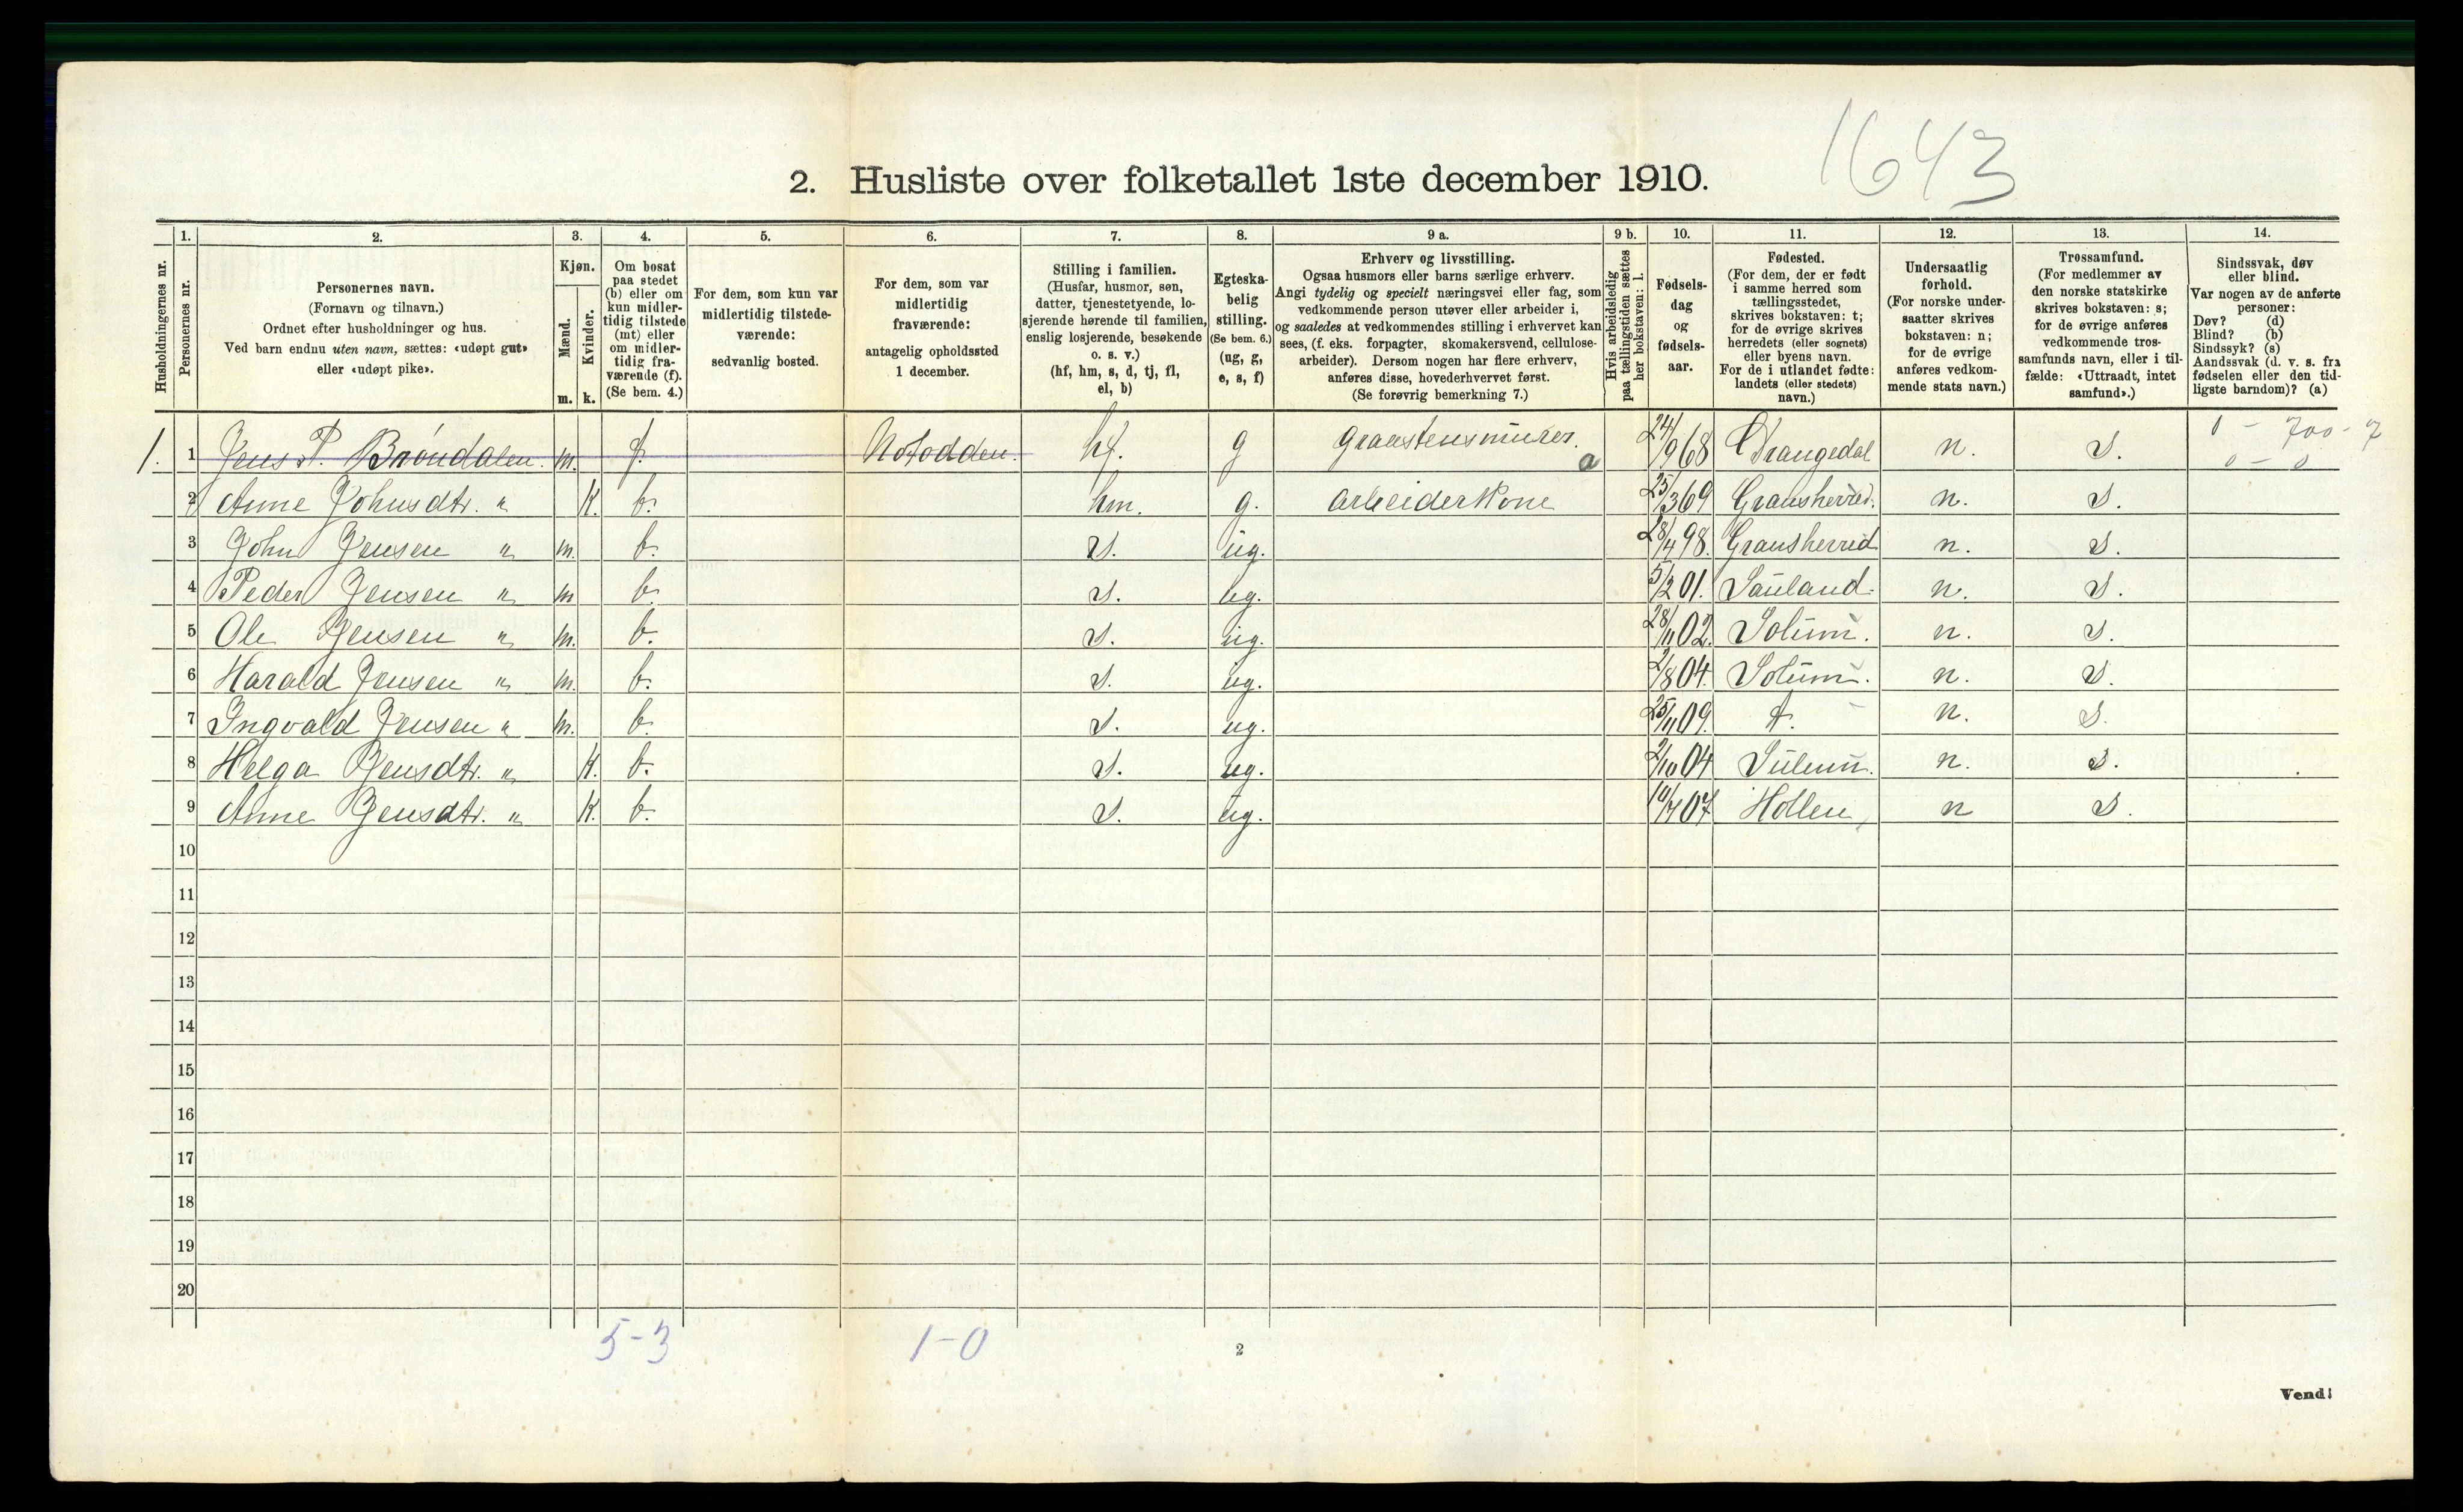 1643
2. Husliste over folketallet 1ste december 1910.
Husholdningernes nr.
1. Personernes nr.
2. Personernes navn. (Fornavn og tilnavn.) Ordnet efter husholdninger og hus. Ved barn endnu uten navn, sættes: «udøpt gut» eller «udøpt pike».
3. Kjøn. Mænd. m. Kvinder. k.
4. Om bosat paa stedet (b) eller om kun midlertidig tilstede (mt) eller om midlertidig fraværende (f). (Se bem. 4.)
5. For dem, som kun var midlertidig tilstedeværende: sedvanlig bosted.
6. For dem, som var midlertidig fraværende: antagelig opholdssted 1 december.
7. Stilling i familien. (Husfar, husmor, søn, datter, tjenestetyende, losjerende hørende til familien, enslig losjerende, besøkende o. s. v.) (hf, hm, s, d, tj, fl, el, b)
8. Egteskabelig stilling. (Se bem. 6.) (ug, g, e, s, f)
9 a. Erhverv og livsstilling. Ogsaa husmors eller barns særlige erhverv. Angi tydelig og specielt næringsvei eller fag, som vedkommende person utøver eller arbeider i, og saaledes at vedkommendes stilling i erhvervet kan sees, (f. eks. forpagter, skomakersvend, cellulosearbeider). Dersom nogen har flere erhverv, anføres disse, hovederhvervet først. (Se forøvrig bemerkning 7.)
9 b. Hvis arbeidsledig paa tællingstiden sættes her bokstaven: l.
10. Fødselsdag og fødselsaar.
11. Fødested. (For dem, der er født i samme herred som tællingsstedet, skrives bokstaven: t; for de øvrige skrives herredets (eller sognets) eller byens navn. For de i utlandet fødte: landets (eller stedets) navn.)
12. Undersaatlig forhold. (For norske undersaatter skrives bokstaven: n; for de øvrige anføres vedkommende stats navn.)
13. Trossamfund. (For medlemmer av den norske statskirke skrives bokstaven: s; for de øvrige anføres vedkommende trossamfunds navn, eller i tilfælde: «Uttraadt, intet samfund».)
14. Sindssvak, døv eller blind. Var nogen av de anførte personer: Døv? (d) Blind? (b) Sindssyk? (s) Aandssvak (d. v. s. fra fødselen eller den tidligste barndom)? (a)
1. 1 Jens P. Brøndalen. m. f. Notodden. hf. g Graastensmurer. a 24/9 68 Drangedal n. s. 0 - 700 - 7 0 - 0
2 Anne Johnsdtr. " K. b. hm. g. arbeiderkone 25/3 69 Gransherred. n. s.
3 John Jensen " m. b. s. ug. 28/4 98. Gransherred n. s.
4 Peder Jensen " m b. s. ug. 5/2 01. Sauland. n. s.
5 Ole Jensen " m. b. s. ug. 28/11 02. Solum. n. s.
6 Harald Jensen " m. b. s. ug. 2/8 04. Solum. n. s.
7 Ingvald Jensen " m. b. s. ug. 25/11 09. t. n. s.
8 Helga Jensdtr. " K. b. s. ug. 2/10 04 n. s.
9 Anne Jensdtr. " K. b. s. ug. 10/7 07 Hollen n s.
10
11
12
13
14
15
16
17
18
19
20
5-3 1-0
2
Vend!